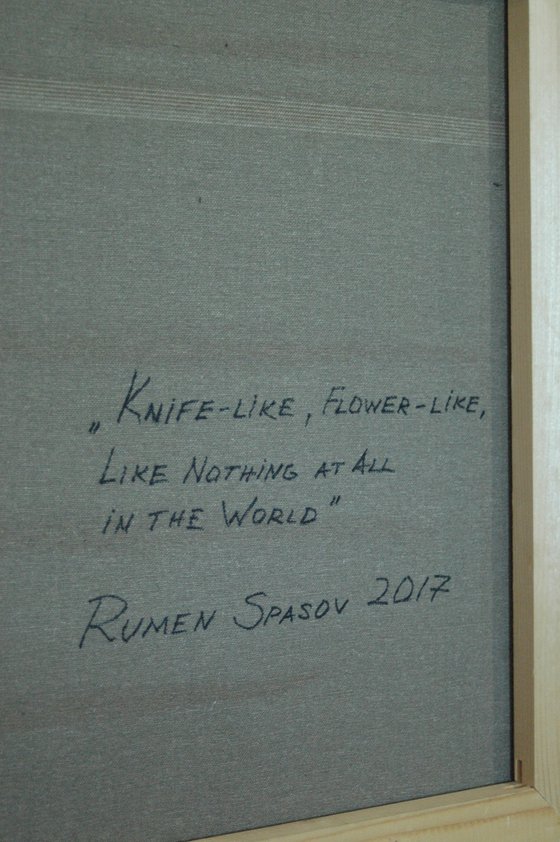 „Knife-like, Flower-like,
Like Nothing at All
in the World”
Rumen Spasov 2017